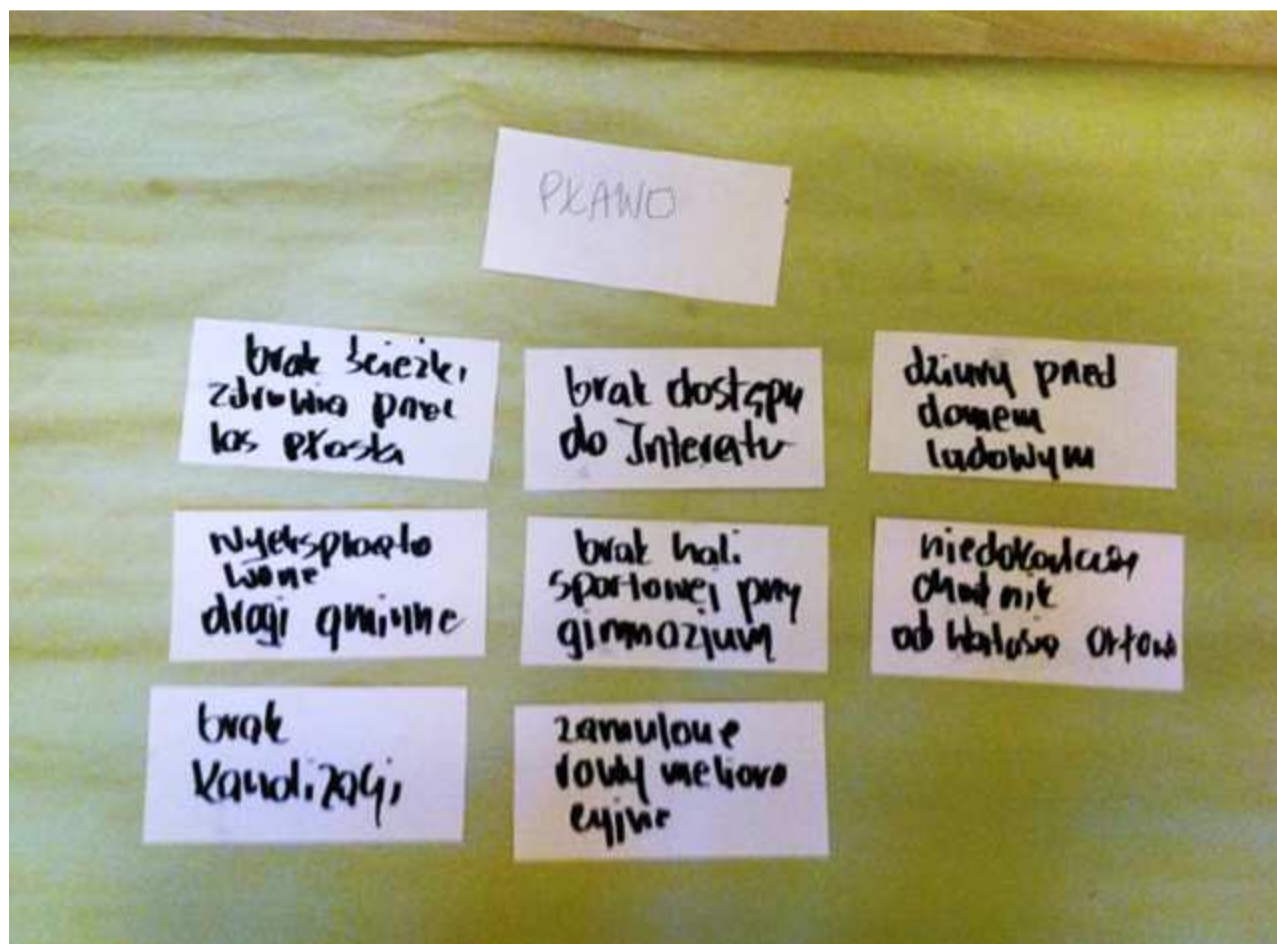 PŁAWO
brak ścieżki
zdrowia przez
las Płaska
brak dostępu
do Interetu
dziury pred
domem
ludowym
wyeksploato
wane
drogi gminne
brak hali
sportowej przy
gimnazjum
niedokończony
chodnik
od
brak
kanalizacji
zamulone
rowy meliora
cyjne